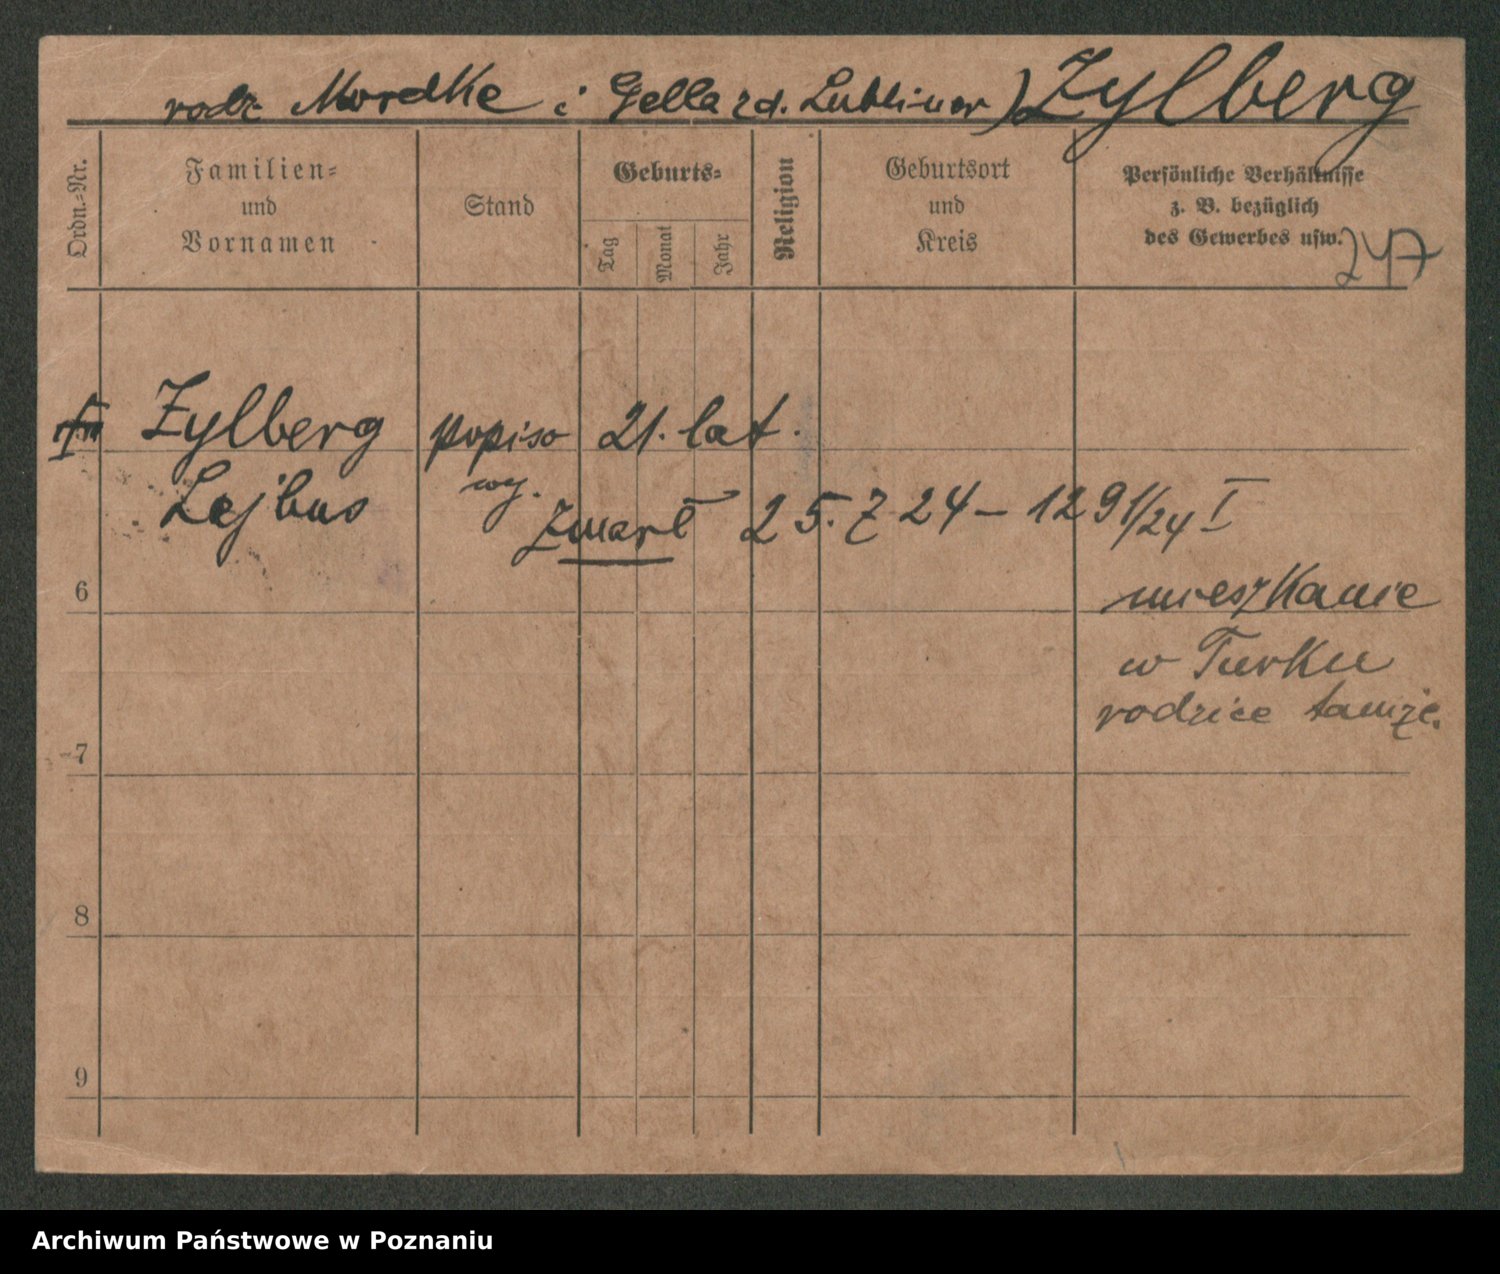 rodz. Mordke i Gella zd. Lubliner) Zylberg
Ordn.-Nr.
Familien-
und
Vornamen
Stand
Geburts-
Tag
Monat
Jahr
Religion
Geburtsort
und
Kreis
Persönliche Verhältnisse
z. B. bezüglich
des Gewerbes usw.
247
Zylberg popiso 21. lat.
Lejbus wy.
Zmarł 25.7 24 – 1291/24 I
6
mieszkanie
w Turku
rodzice tamże.
7
8
9
Archiwum Państwowe w Poznaniu